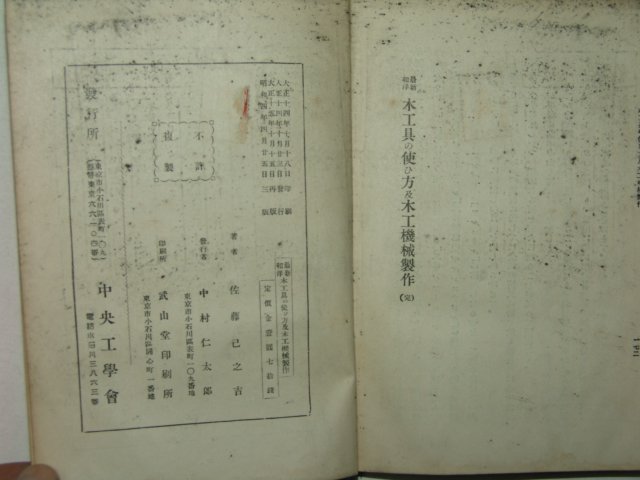 最新和洋 木工具の使ひ方及木工機械製作 (完)
大正十四年七月十八日印刷
大正十四年十月廿三日發行
大正十五年十月十五日再版
昭和四年四月廿五日三版
不許複製
最新和洋 木工具の使ひ方及木工機械製作
定價金壹圓七拾錢
著者 佐藤巳之吉
東京市小石川區表町一〇九番地
發行者 中村仁太郎
東京市小石川區同心町一番地
印刷所 武山堂印刷所
發行所
東京市小石川區表町一〇九
中央工學會